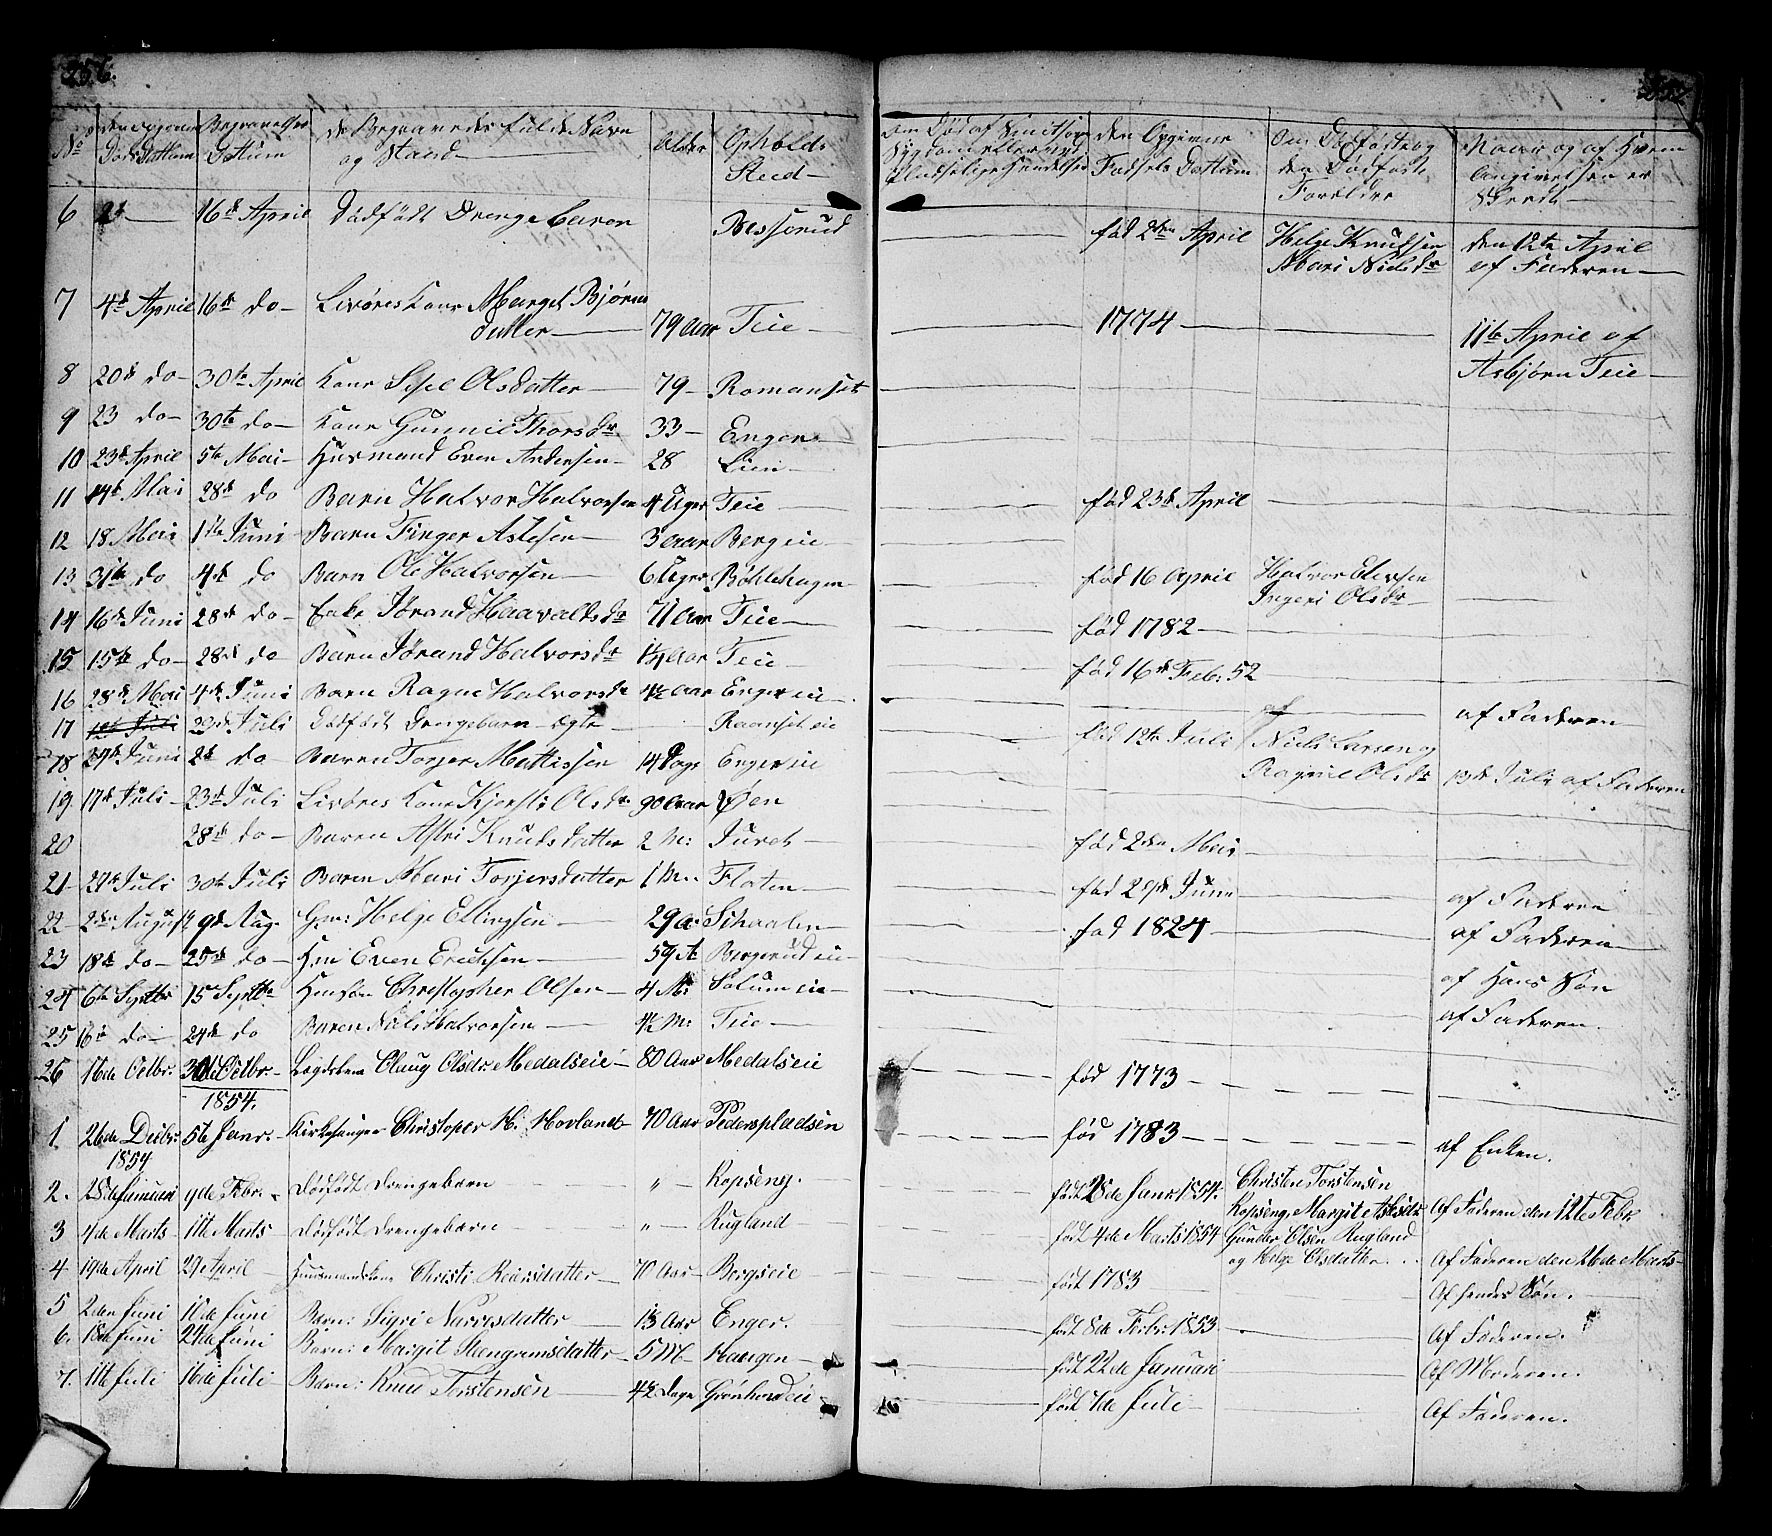 256.
No | den opgivne Døds Dattum | Begravelses Dattum | de Begravedes fulde Navn og Stand | Alder | Opholds Sted | Den Død af Smitsom Sygdom eller ved Ulykkelige Hendelser | den Opgivne Fødsels Dattum | Om Dødfødt og den Dødfødte Forældre | Naar og af Hvem Angivelsen er Skeedt
6 | 2d | 16de April | Dødfødt Drenge Barn | | Besserud | | fød 2den April | Helge Knudsen Mari Nielsdr | den 12te April af Faderen
7 | 4de April | 16de do | Livøres Kone Marget Bjørns datter | 79 Aar | Teie | | 1774 | | 11te April af Asbjørn Teie
8 | 20de do | 30te April | Kone Sisel Olsdatter | 79 | Romanset
9 | 23 do | 30te do | Kone Gunnil Thorsdr | 33 | Enger
10 | 23de April | 5te Mai | Husmand Even Andersen | 28 | Lien
11 | 14de Mai | 28de do | Barn Halvor Halvorsen | 4 Uger | Teie | | fød 23de April
12 | 18 Mai | 1ste Juni | Barn Finger Aslesen | 3 aar | Bergeie
13 | 31te do | 4de do | Barn Ole Halvorsen | 6 Uger | Bøhlehagen | | fød 16 April | Halvor Elevsen Ingeri Olsdr
14 | 16de Juni | 28de do | Enke Jørand Haavaldsdr | 71 Aar | Teie | | fød 1782
15 | 15te do | 28de do | Barn Jørand Halvorsdr | 1¼ Aar | Teie | | fød 16de Feb: 52
16 | 28de Mai | 4de Juni | Barn Ragne Halvorsdr | 4½ aar | Engereie | | | | af Faderen
17 | 12te Juli | 23de Juli | Dødfødt Drengebarn ægte | | Raanset eie | | fød 12te Juli | af Niels Larsen og Ragnil Olsdr | 13de Juli af Faderen
18 | 29de Juni | 2de do | Baren Torger Mattissen | 14 Dage | Enger eie
19 | 17de Juli | 23de Juli | Livøres Kone Kjersti Olsdr | 90 Aar | Øen
20 | | 28de do | Baren Astri Knudsdatter | 2 M: | Juret | | fød 2den Mai
21 | 27de Juli | 30te Juli | Baren Mari Torjersdatter | 1 M: | Floten | | fød 29de Juni | | af Faderen
22 | 2den August | 9de Aug. | Gm: Helge Ellingsen | 29 a: | Schaalen | | fød 1824 | | af Faderen
23 | 18de do | 25de do | Hm Even Ericksen | 59 A | Bergerud eie | | | | af Hans Søn
24 | 6te Septbr | 15 Septbr | Hmsøn Christopher Olsen | 4 M: | Solumeie | | | | af Faderen.
25 | 16de do | 24de do | Baren Niels Halvorsen | 4½ M: | Teie
26 | 16de Octbr. | 30te Octbr. | Lægdslem Olaug Olsdr Medalseie | 80 Aar | Medalseie | | fød 1773
1854.
1. | 26de Decbr. | 5te Janr. | Kirkesanger Christoper H. Hovland | 70 Aar | Pederspladsen | | fød 1783 | | af Enken.
1854
2. | 28de Januari | 9de Febr. | Dødfødt Drengebarn | " | Kopseng. | | født 28de Janr. 1854. | Christen Torstensen Kopseng, Margit Aslesdr | Af Faderen den 12te Febr.
3 | 4de Marts | 11te Marts | Dødfødt Drengebarn | " | Rugland | | født 4de Marts 1854 | Gunder Olsen Rugland og Helge Olsdatter | Af Faderen den 26de Marts
4 | 19de April | 29 April | Huusmandskone Christi Reiersdatter | 70 Aar | Bergseie | | født 1783 | | Af hendes Søn.
5 | 2den Juni | 10de Juni | Barn: Sigri Narvesdatter | 1⅓ Aar | Enger. | | født 8de Febr: 1853 | | Af Faderen.
6. | 18de Juni | 24de Juni | Barn: Margit Stengrimsdatter | 5 M | Haugen | | født 22de Januari | | Af Moderen.
7. | 11te Juli | 16de Juli | Barn: Knud Torstensen | 4½ Dage | Grønhovdeie | | født 7de Juli | | Af Faderen.